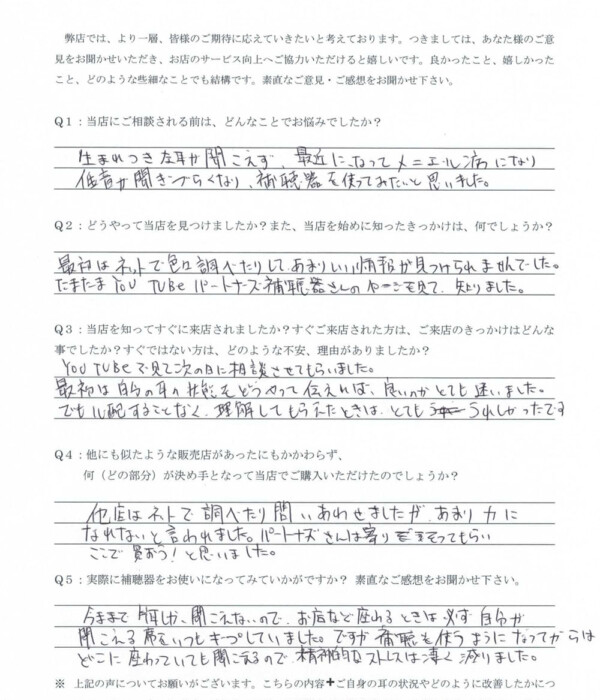 弊店では、より一層、皆様のご期待に応えていきたいと考えております。つきましては、あなた様のご意
見をお聞かせいただき、お店のサービス向上へご協力いただけると嬉しいです。良かったこと、嬉しかった
こと、どのような些細なことでも結構です。素直なご意見・ご感想をお聞かせ下さい。
Q1：当店にご相談される前は、どんなことでお悩みでしたか？
生まれつき左耳が聞こえず、最近になってメニエール病になり
低音が聞きづらくなり、補聴器を使ってみたいと思いました。
Q2：どうやって当店を見つけましたか？また、当店を始めに知ったきっかけは、何でしょうか？
最初はネットで色々調べたりして、あまりいい情報が見つけられませんでした。
たまたまYOU TUBeパートナーズ補聴器さんの を見て、知りました。
Q3：当店を知ってすぐに来店されましたか？すぐご来店された方は、ご来店のきっかけはどんな
事でしたか？すぐではない方は、どのような不安、理由がありましたか？
YOU TUBeで見て次の日に相談させてもらいました。
最初は自分の耳の状態をどうやって伝えれば、良いのかとても迷いました。
でも心配することなく、理解してもらえたときは、とても うれしかったです
Q4：他にも似たような販売店があったにもかかわらず、
何（どの部分）が決め手となって当店でご購入いただけたのでしょうか？
他店はネットで調べたり問いあわせましたが、あまり力に
なれないと言われました。パートナーズさんは寄りそってもらい
ここで買おう！と思いました。
Q5：実際に補聴器をお使いになってみていかがですか？ 素直なご感想をお聞かせ下さい。
今まで片耳しか、聞こえないので、お店など座るときは必ず自分が
聞こえる席をいつもキープしていました。ですが補聴を使うようになってからは
どこに座っていても聞こえるので精神的なストレスは凄く減りました。
※ 上記の声についてお願いがございます。こちらの内容＋ご自身の耳の状況やどのように改善したかにつ